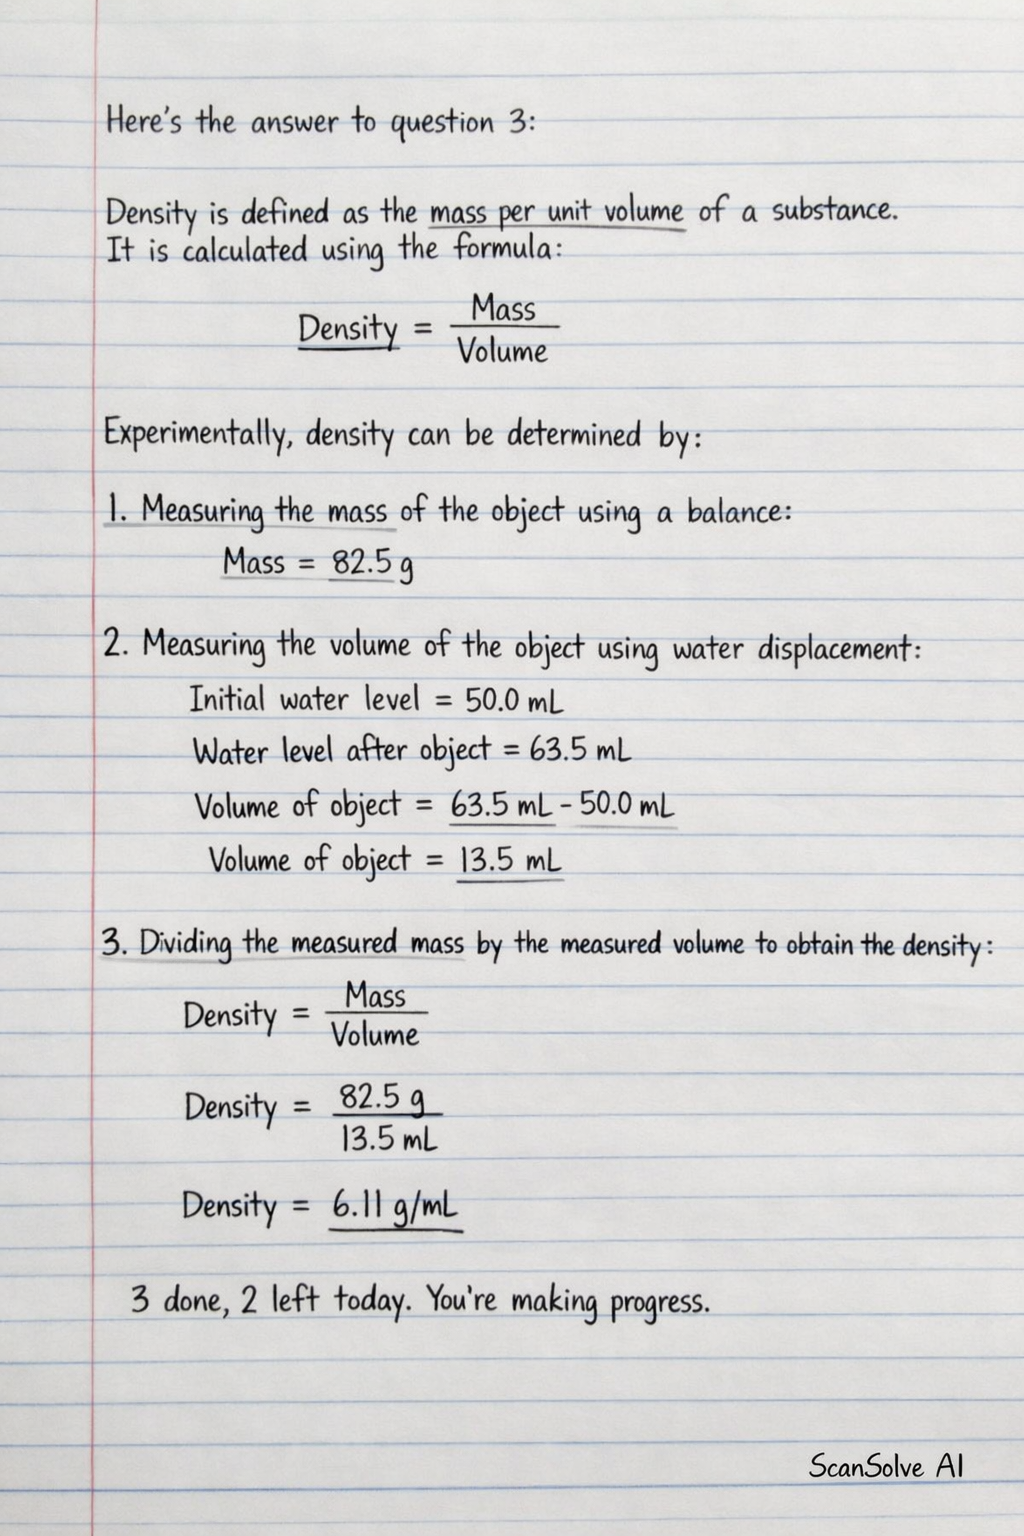 Here's the answer to question 3:
Density is defined as the mass per unit volume of a substance.
It is calculated using the formula:
Density = Mass / Volume
Experimentally, density can be determined by:
1. Measuring the mass of the object using a balance:
Mass = 82.5 g
2. Measuring the volume of the object using water displacement:
Initial water level = 50.0 mL
Water level after object = 63.5 mL
Volume of object = 63.5 mL - 50.0 mL
Volume of object = 13.5 mL
3. Dividing the measured mass by the measured volume to obtain the density:
Density = Mass / Volume
Density = 82.5 g / 13.5 mL
Density = 6.11 g/mL
3 done, 2 left today. You're making progress.
ScanSolve AI